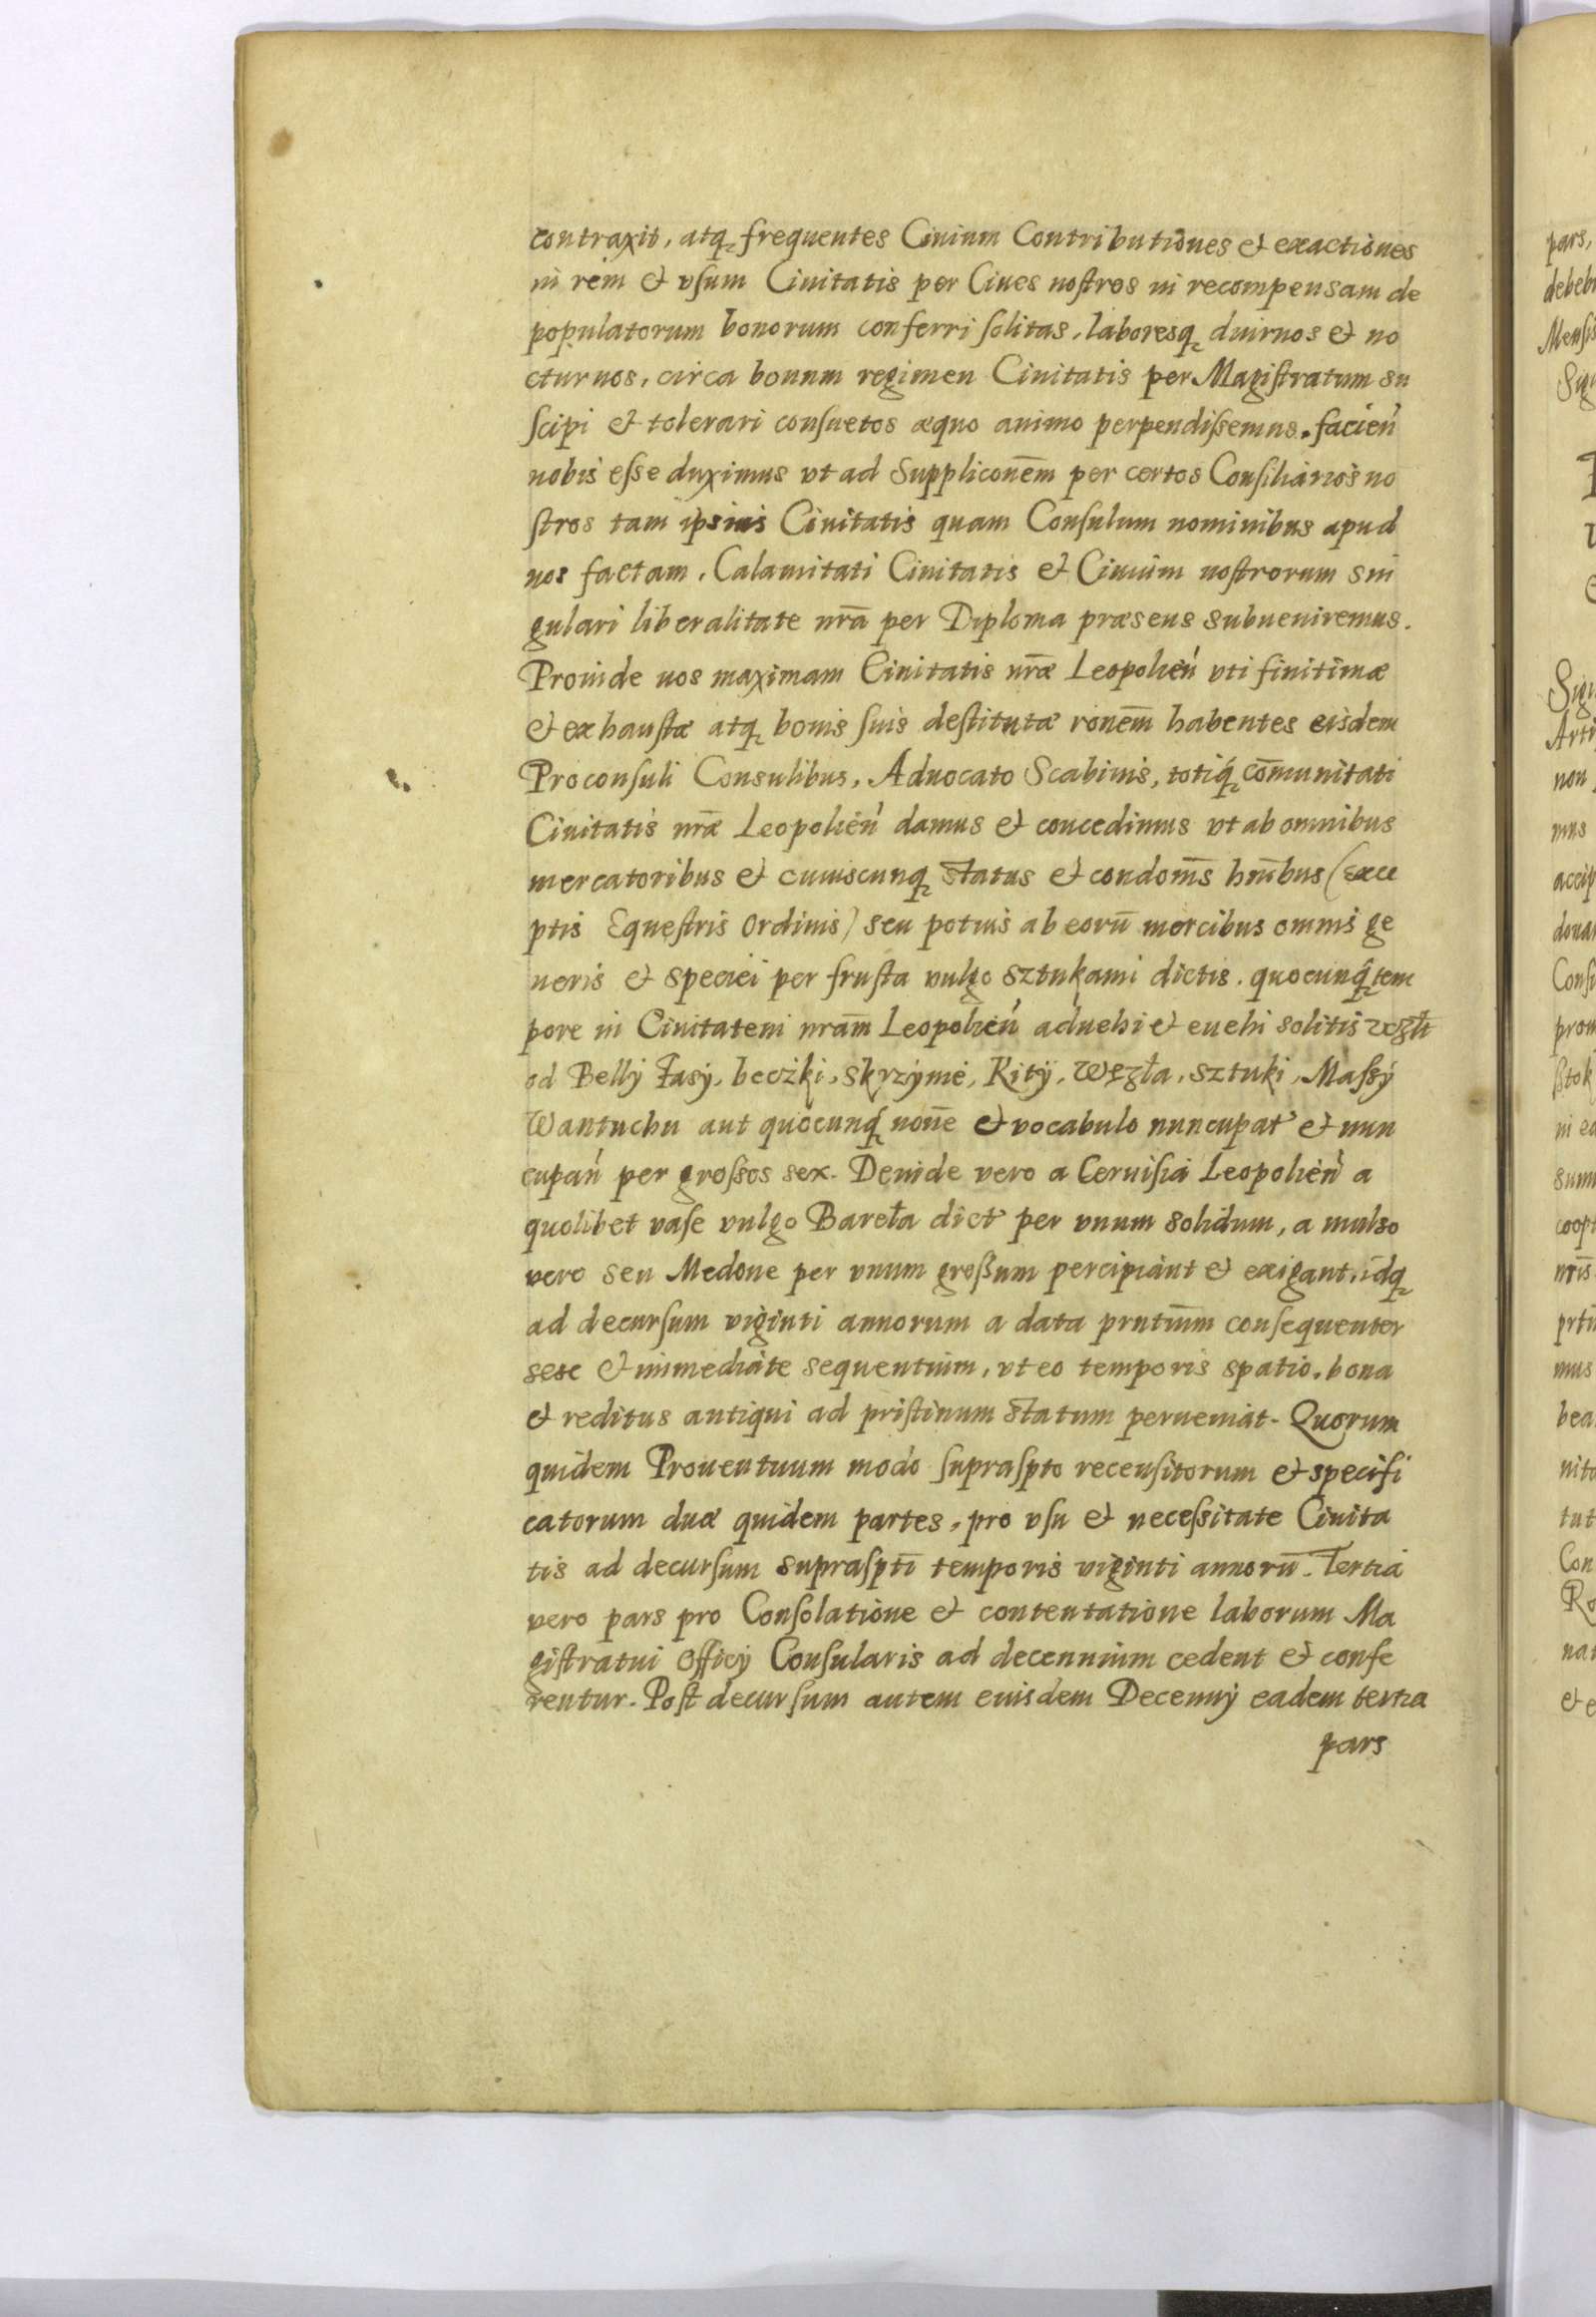 contraxit, atq₃ frequentes Civium Contributiones et exactiones
in rem & vſum Ciuitatis per Ciues noſtros in recompensam de
populatorum bonorum conferri ſolitas, laboresq₃ diurnos & no
cturnos, circa bonum regimen Ciuitatis per Magiſtratum su
ſcipi & tolerari conſuetos æquo animo perpendiſsemus. facień
nobis eſse duximus vt ad Suppliconēm per certos Conſiliarios no
ſtros tam ipsius Ciuitatis quam Conſulum nominibus apud
nos factam, Calamitati Ciuitatis & Ciuium noſtrorum sin
gulari liberalitate nrā per Diploma præsens subueniremus.
Proinde nos maximam Ciuitatis nrǣ Leopolień vti finitimæ
& exhauſtæ atq₃ bonis ſuis deſtitutæ ronēm habentes eisdem
Proconſuli Consulibus, Aduocato Scabinis, totiq́₃ com̄unitati
Ciuitatis nrǣ Leopolień damus & concedimus vt ab omnibus
mercatoribus & cuiuscunq₃ status & condom̄s hnībus (exce
ptis Equeſtris Ordinis) seu potius ab eorū mercibus omnis ge
neris & speciei per fruſta vulgo sztukami dictis, quocunq́₃ tem
pore in Ciuitatem nrām Leopolień aduehi & euehi solitis vzgłt
od Belly Fasy, beczki, skrzynie, Kity, Węzła, sztuki, Maſsy
Wantuchu aut quocunq́₃ nōne & vocabulo nuncupat' & nun
cupań per groſsos sex. Deinde vero a Ceruiſia Leopolień a
quolibet vaſe vulgo Bareła dict' per vnum solidum, a mulso
vero seu Medone per vnum groſsum percipiant & exigant, idq₃
ad decurſum viginti annorum a data prntiūm conſequenter
sese & immediate sequentium, vt eo temporis spatio, bona
& reditus antiqui ad priſtinum statum perueniāt. Quorum
quidem Prouentuum modo ſupraſpto recenſitorum & specifi
catorum duæ quidem partes, pro vſu & neceſsitate Ciuita
tis ad decurſum supraſptī temporis viginti annorū. Tertia
vero pars pro Conſolatione & contentatione laborum Ma
giſtratui Officÿ Conſularis ad decennium cedent & confe
rentur. Poſt decurſum autem eiusdem Decennÿ eadem tertia
pars